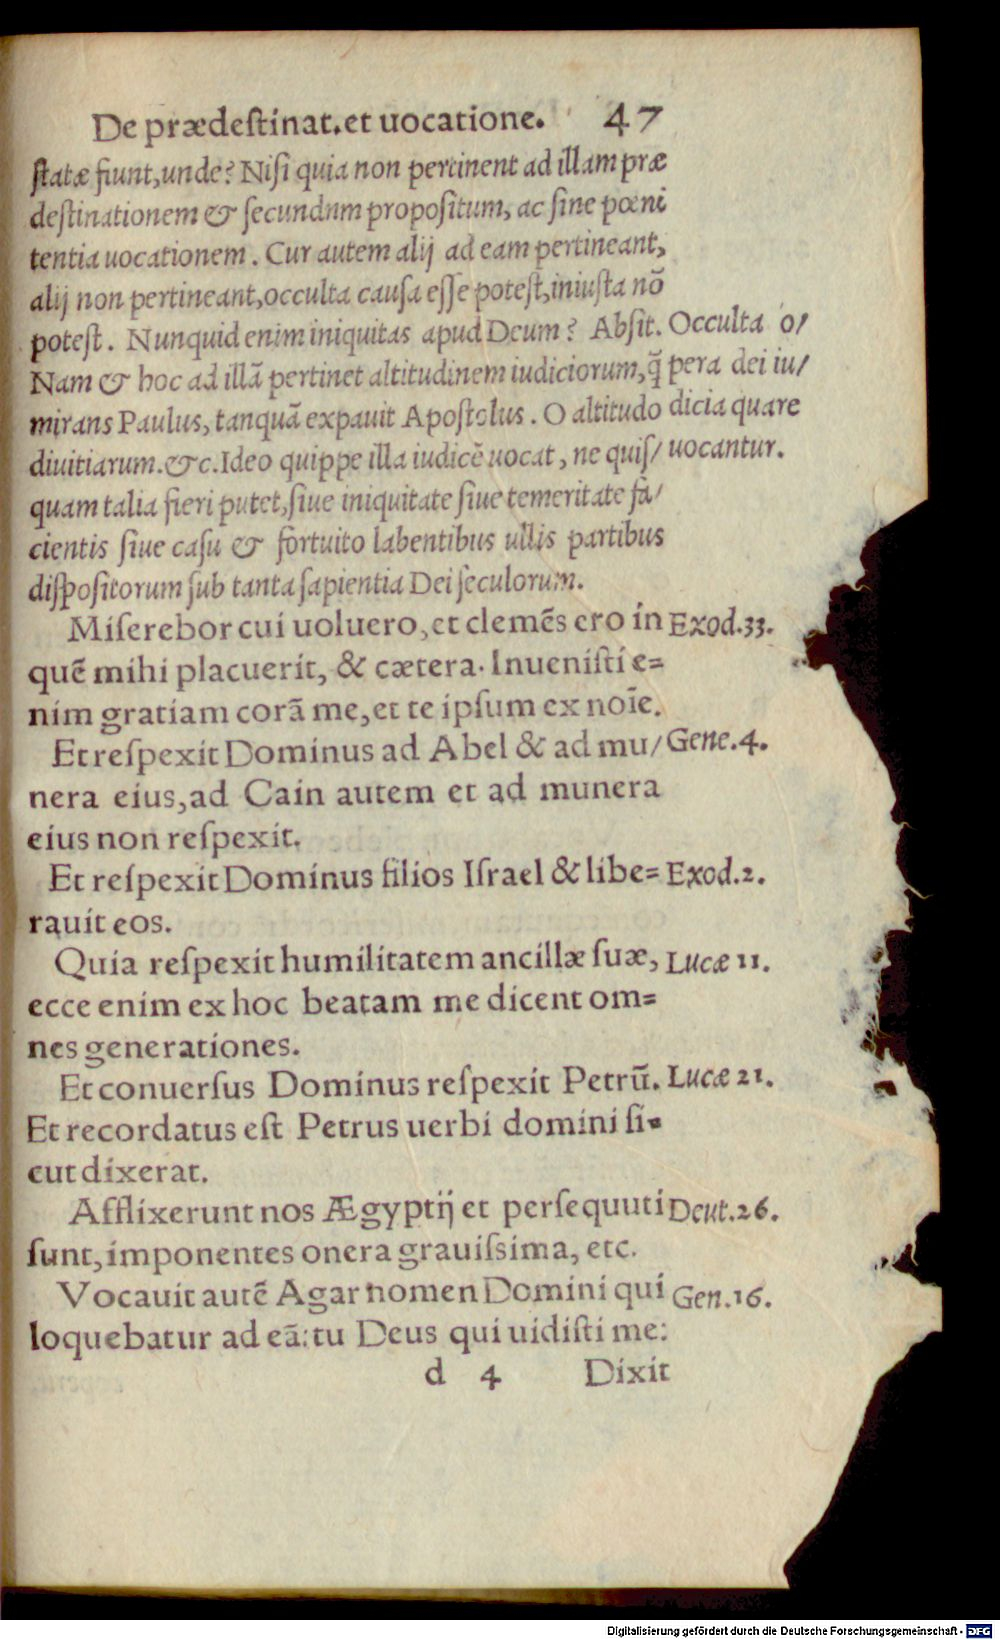 De prædeſtinat.et uocatione. 47
ſtatæ fiunt,unde? Niſi quia non pertinent ad illam præ
deſtinationem & ſecundnm propoſitum, ac ſine pœni
tentia uocationem. Cur autem alij ad eam pertineant,
alij non pertineant,occulta cauſa eſſe poteſt,iniuſta nō
poteſt. Nunquid enim iniquitas apud Deum? Abſit.
Nam & hoc ad illā pertinet altitudinem iudiciorum,q̄
mirans Paulus, tanquā expauit Apoſtolus. O altitudo
diuitiarum.&c.Ideo quippe illa iudicē uocat, ne quiſ/
quam talia fieri putet,ſiue iniquitate ſiue temeritate fa/
cientis ſiue caſu & fortuito labentibus ullis partibus
diſpoſitorum ſub tanta ſapientia Dei ſeculorum.
Occulta o/
pera dei iu/
dicia quare
uocantur.
Miſerebor cui uoluero,et clemēs ero in
quē mihi placuerit, & cætera. Inueniſti e=
nim gratiam corā me,et te ipſum ex noīe.
Exod.33.
Et reſpexit Dominus ad Abel & ad mu/
nera eius,ad Cain autem et ad munera
eius non reſpexit.
Gene.4.
Et reſpexit Dominus filios Iſrael & libe=
rauit eos.
Exod.2.
Quia reſpexit humilitatem ancillæ ſuæ,
ecce enim ex hoc beatam me dicent om=
nes generationes.
Lucæ 11.
Et conuerſus Dominus reſpexit Petrū.
Et recordatus eſt Petrus uerbi domini ſi=
cut dixerat.
Lucæ 21.
Afflixerunt nos Ægyptij et perſequuti
ſunt, imponentes onera grauiſsima, etc.
Deut.26.
Vocauit autē Agar nomen Domini qui
loquebatur ad eā: tu Deus qui uidiſti me:
Gen.16.
d 4 Dixit
Digitalisierung gefördert durch die Deutsche Forschungsgemeinschaft - DFG